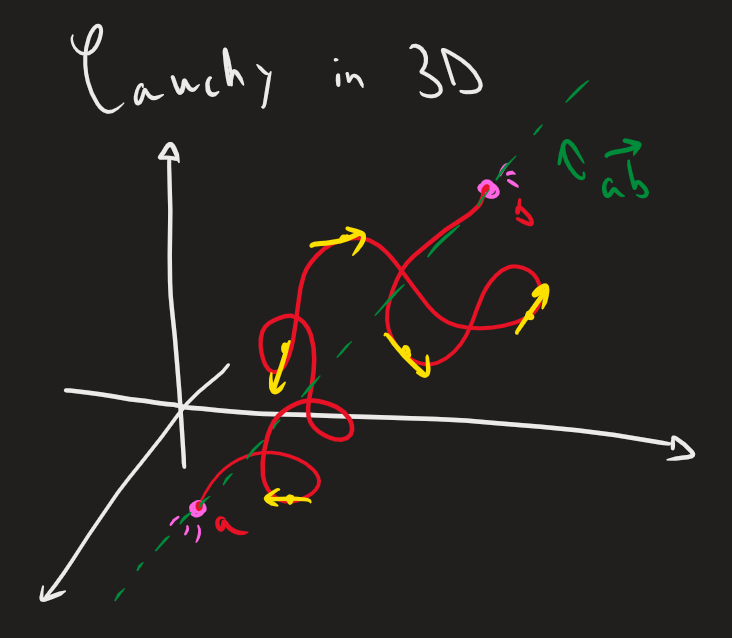 Cauchy in 3D
b
ab
a